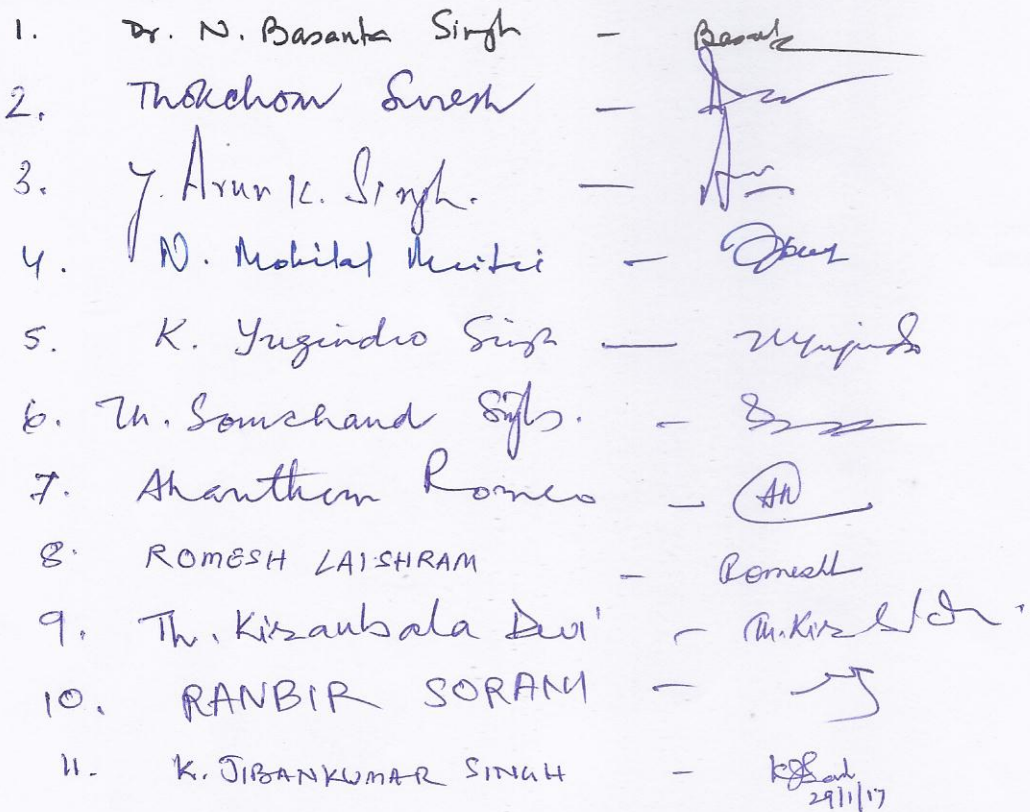 1. Dr. N. Basanta Singh - Basanta
2. Thokchom Suresh -
3. Y. Arun K. Singh. -
4. N. Mohilal Meitei -
5. K. Yugindro Singh -
6. Th. Somchand Singh. -
7. Ahanthem Romeo - AR
8. ROMESH LAISHRAM - Romesh
9. Th. Kiranbala Devi - Th. Kir
10. RANBIR SORAM -
11. K. JIBANKUMAR SINGH -
29/1/17